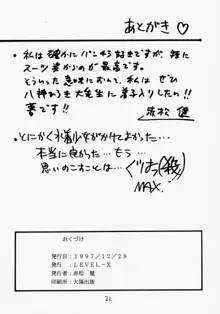 あとがき ♡
・私は確かにパンチラ好きですが、特に
スーツ姿からのが最高です。
そういった意味において、私は ぜひ
八神ひろき大先生に弟子入りしたい!!
夢です!!
赤松 健
・とにかく水着少女がかけてよかった…
本当に良かった…もう…
思いのこすことは… ぐはっ(殺)
MAX.
おくづけ
発行日:1997/12/29
発行:LEVEL-X
発行者:赤松 健
印刷所:大陽出版
22